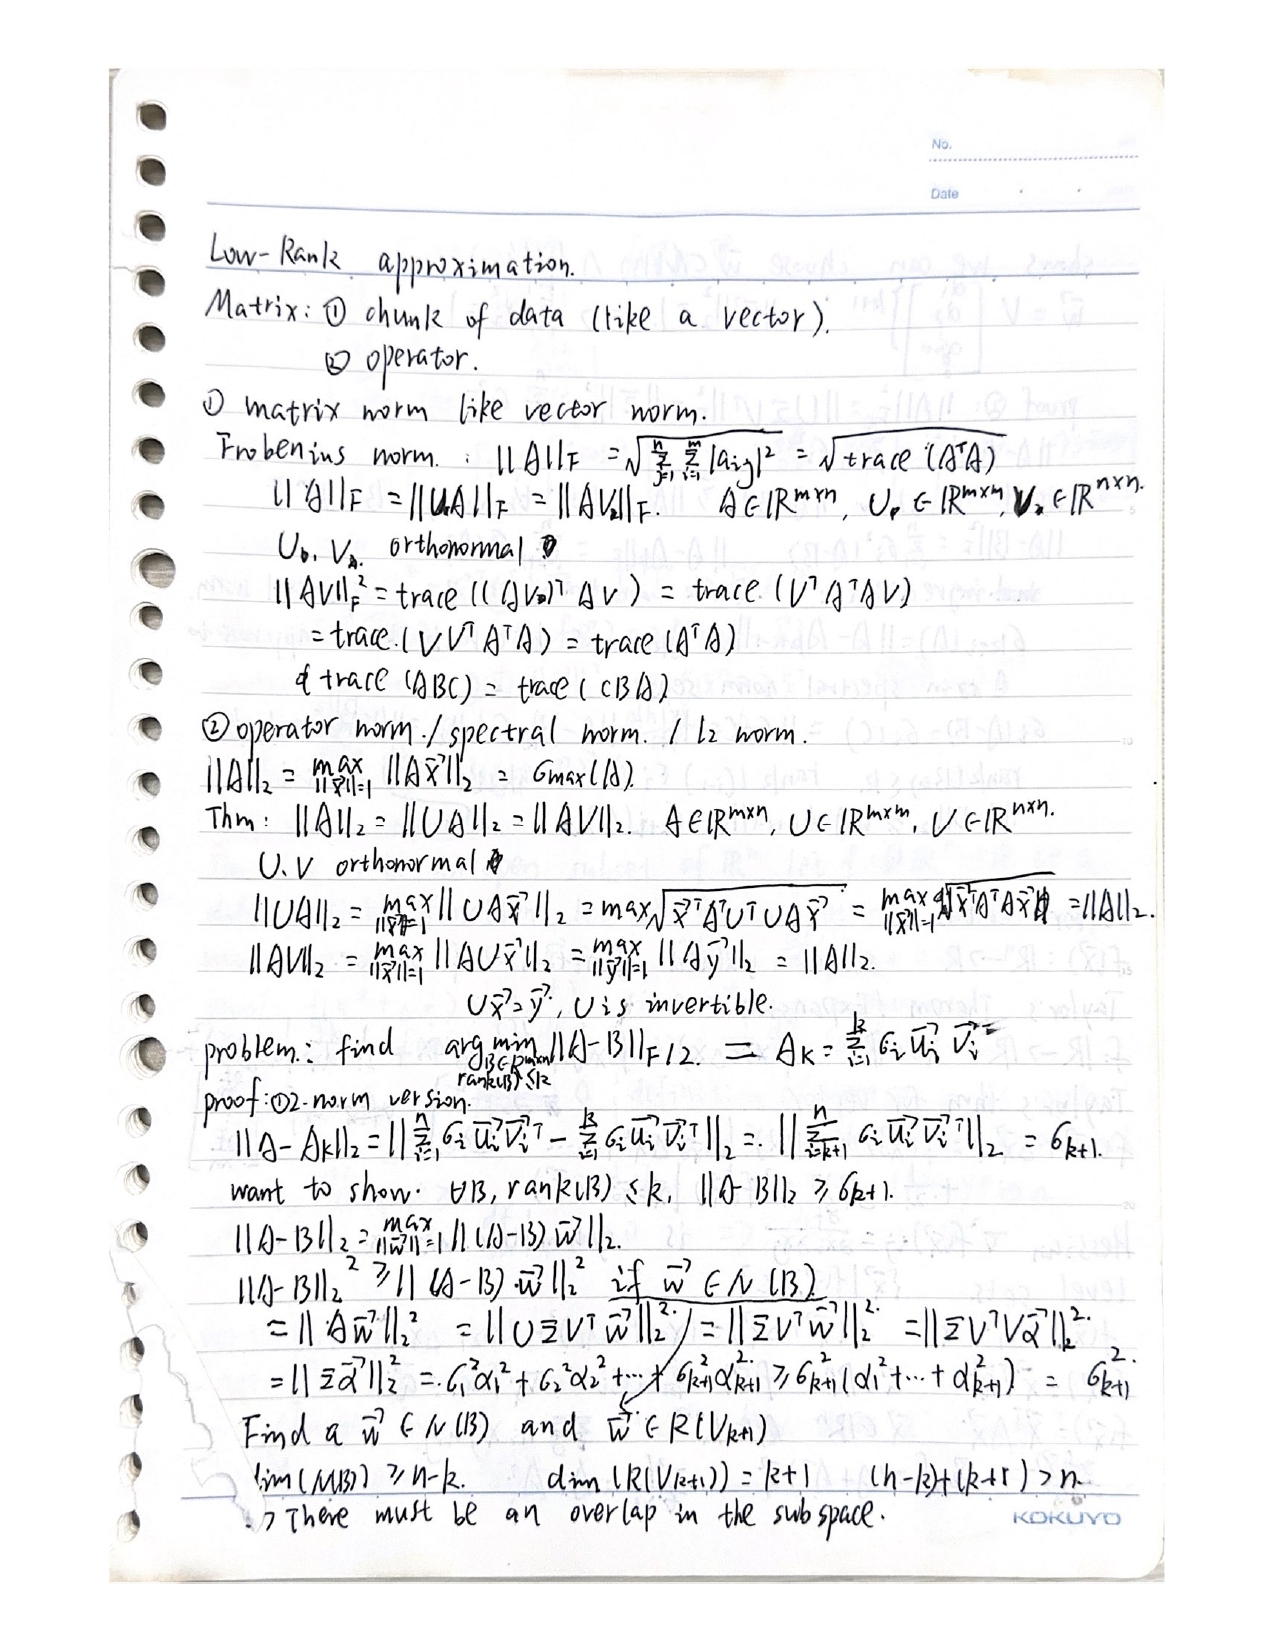 No.
Date
Low-Rank approximation.
Matrix: ① chunk of data (like a vector).
② operator.
① matrix norm like vector norm.
Frobenius norm. : ||A||_F = √(Σ_{j=1}^n Σ_{i=1}^m |a_ij|²) = √(trace (AᵀA))
||A||_F = ||UA||_F = ||AV||_F. A∈ℝ^{m×n}, U ∈ ℝ^{m×m}, V ∈ ℝ^{n×n}.
U, V orthonormal
||AV||_F² = trace ((AV)ᵀ AV) = trace (Vᵀ AᵀAV)
= trace (VVᵀAᵀA) = trace (AᵀA)
trace (ABC) = trace (CBA)
② operator norm. / spectral norm. / l2 norm.
||A||₂ = max_{||x⃗||=1} ||Ax⃗||₂ = σmax(A).
Thm: ||A||₂ = ||UA||₂ = ||AV||₂. A∈ℝ^{m×n}, U∈ℝ^{m×m}, V∈ℝ^{n×n}.
U.V orthonormal
||UA||₂ = max_{||x⃗||=1} ||UAx⃗||₂ = max √(x⃗ᵀAᵀUᵀUAx⃗) = max_{||x⃗||=1} √(x⃗ᵀAᵀAx⃗) = ||A||₂.
||AU||₂ = max_{||x⃗||=1} ||AUx⃗||₂ = max_{||y⃗||=1} ||Ay⃗||₂ = ||A||₂.
Ux⃗=y⃗, U is invertible.
problem: find argmin_{B∈ℝ^{m×n} rank(B)≤k} ||A-B||_{F/2}. = A_k = Σ_{i=1}^k σ_i u⃗_i v⃗_iᵀ
proof: ① 2-norm version.
||A-A_k||₂ = ||Σ_{i=1}^n σ_i u⃗_i v⃗_iᵀ - Σ_{i=1}^k σ_i u⃗_i v⃗_iᵀ||₂ = ||Σ_{i=k+1}^n σ_i u⃗_i v⃗_iᵀ||₂ = σ_{k+1}.
want to show. ∀B, rank(B) ≤ k, ||A-B||₂ ≥ σ_{k+1}.
||A-B||₂ = max_{||w⃗||=1} ||(A-B) w⃗||₂.
||A-B||₂² ≥ ||(A-B) w⃗||₂² if w⃗ ∈ N(B)
= ||Aw⃗||₂² = ||UΣVᵀw⃗||₂² = ||ΣVᵀw⃗||₂² = ||ΣVᵀVα⃗||₂²
= ||Σα⃗||₂² = σ₁²α₁² + σ₂²α₂² + ... + σ_{k+1}²α_{k+1}² ≥ σ_{k+1}²(α₁² + ... + α_{k+1}²) = σ_{k+1}²
Find a w⃗ ∈ N(B) and w⃗ ∈ R(V_{k+1})
dim(N(B)) ≥ n-k. dim (R(V_{k+1})) = k+1 (n-k)+(k+1) > n
There must be an overlap in the subspace.
KOKUYO